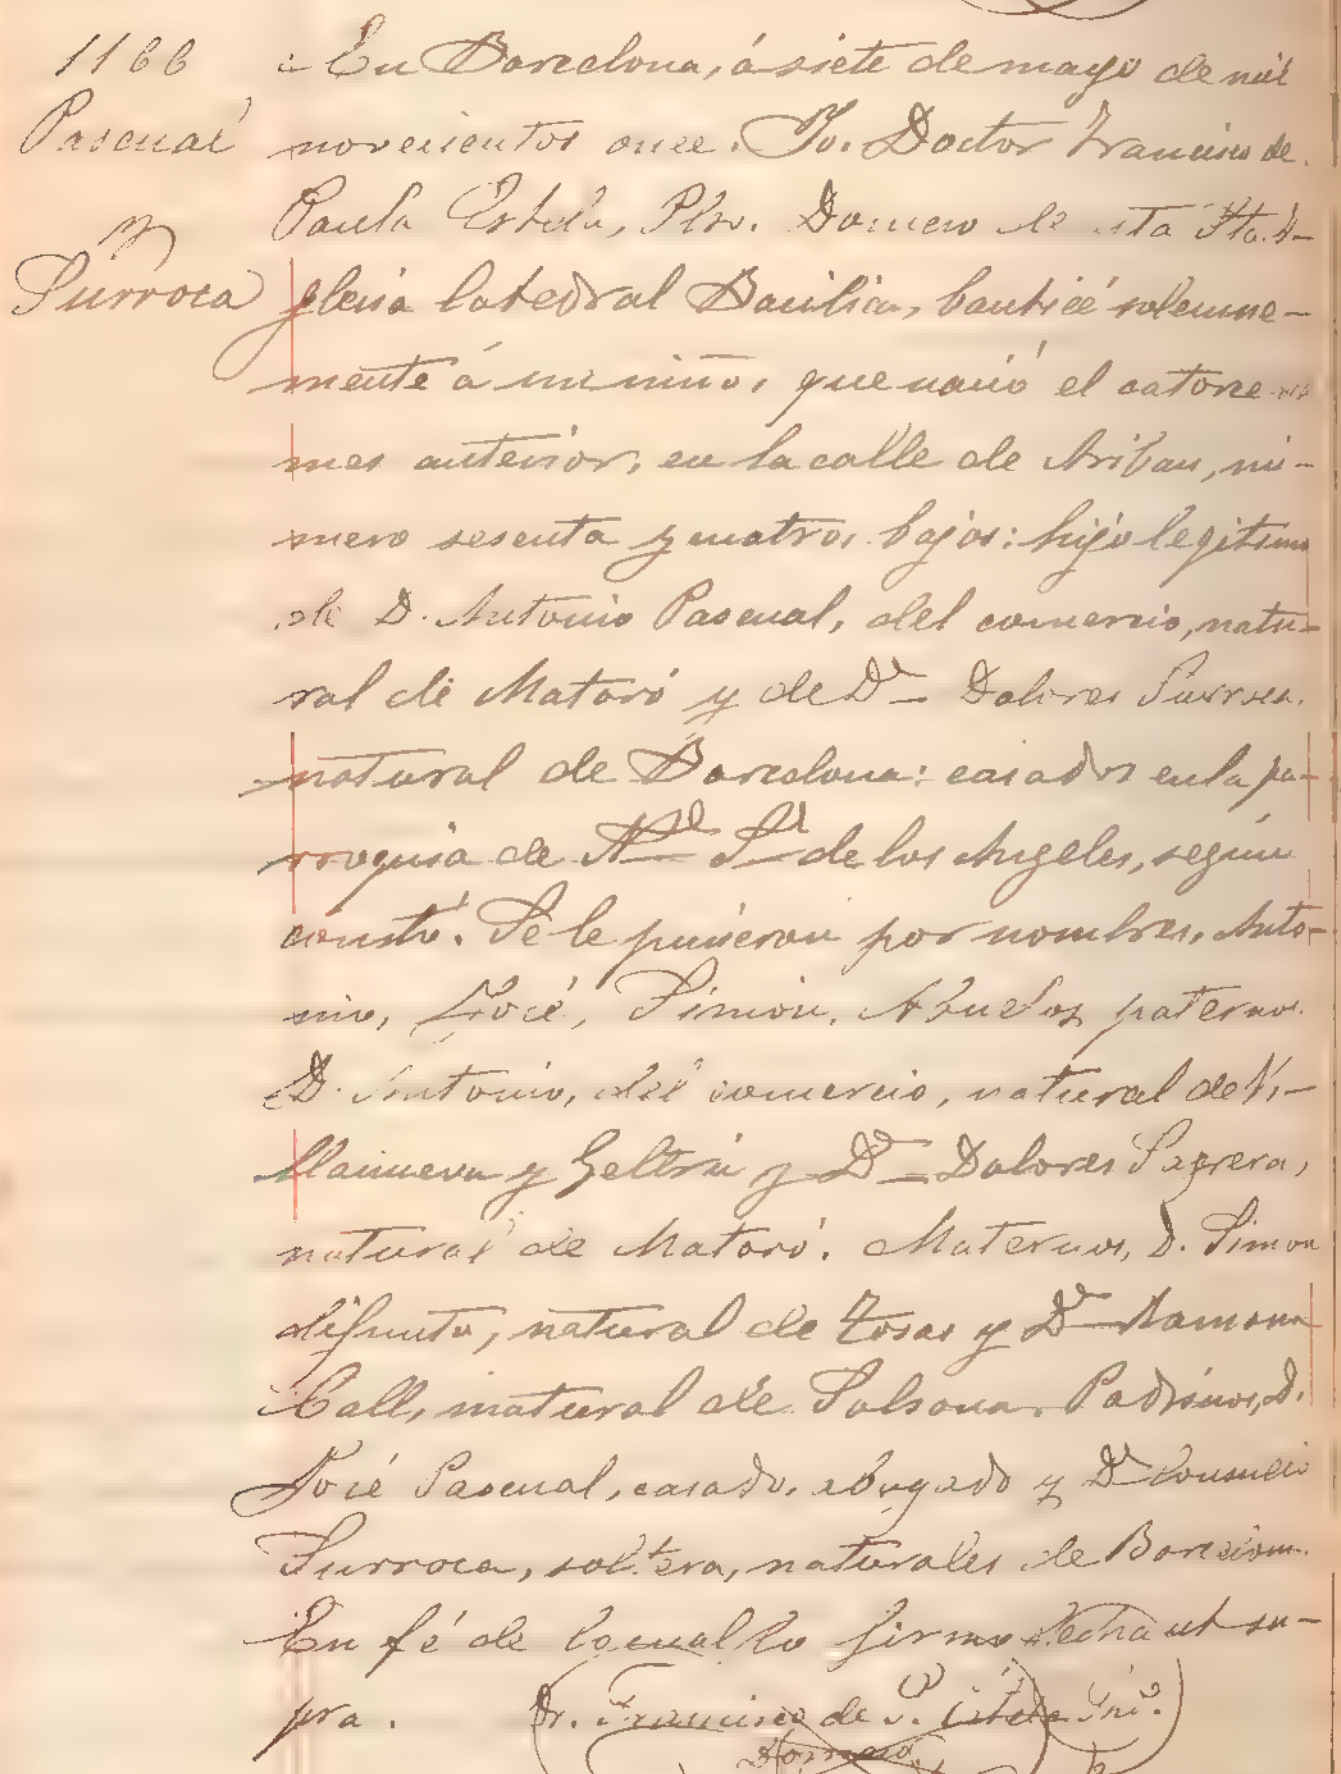 1166
Pascual
y
Surroca
En Barcelona, á siete de mayo de mil
novecientos once. Yo. Doctor Francisco de
Paula Estela, Pbro. Domero de esta Sta. I-
glesia Catedral Basilica, bauticé solemne-
mente á un niño, que nació el catorce
mes anterior, en la calle de Aribau, nú-
mero sesenta y cuatro, bajos: hijo legitimo
de D. Antonio Pascual, del comercio, natu-
ral de Mataró y de Dª Dolores Surroca.
natural de Barcelona: casados en la pa-
rroquia de Nª Sª de los Angeles, según
constó. Se le pusieron por nombres, Anto-
nio, José, Simón. Abuelos paternos
D. Antonio, del comercio, natural de Vi-
llanueva y Geltrú y Dª Dolores Sagrera,
natural de Mataró. Maternos, D. Simon
difunto, natural de Tosas y Dª Ramona
Call, natural de Solsona. Padrinos, D.
José Pascual, casado, abogado y Dª Consuelo
Surroca, soltera, naturales de Barcelona.
En fé de lo cual lo firmo fecha ut su-
pra. Dr. Francisco de P. Estela Pbro.
Domero